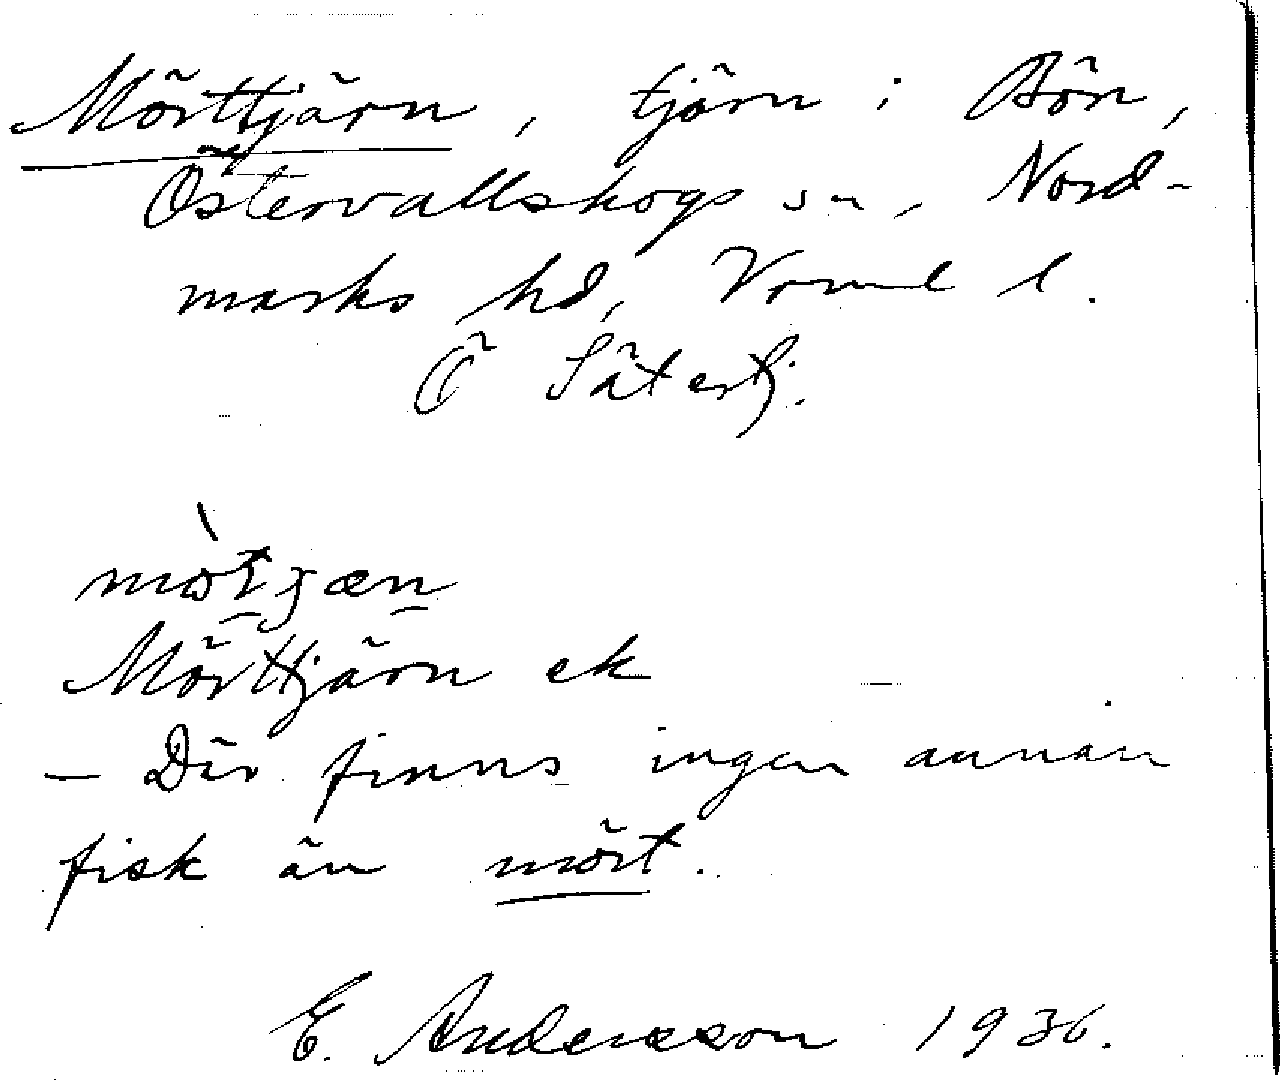 Mörttjärn, tjärn i Bön,
Östervallskogs sn, Nord-
marks hd, Värml l.
Ö Sätertj.
mòt́jæn
Mörttjärn ek
— Där finns ingen annan
fisk än mört.
E. Andersson 1936.